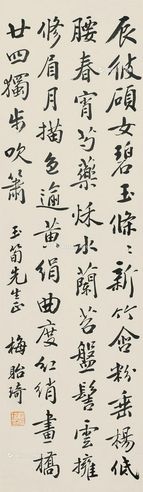 辰彼碩女碧玉條〻新竹含粉垂楊低
腰春宵芍藥秋水蘭苕盤髻雲擁
修眉月描色逾黃絹曲度紅綃畫橋
廿四獨步吹簫
玉筍先生正
梅貽琦